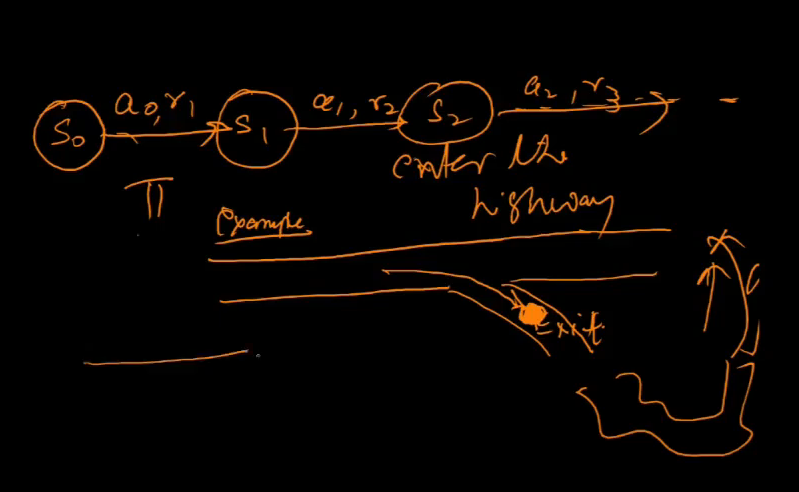 S0 a0, r1 S1 a1, r2 S2 a2, r3 - -
π
enter the
highway
Example
Exit